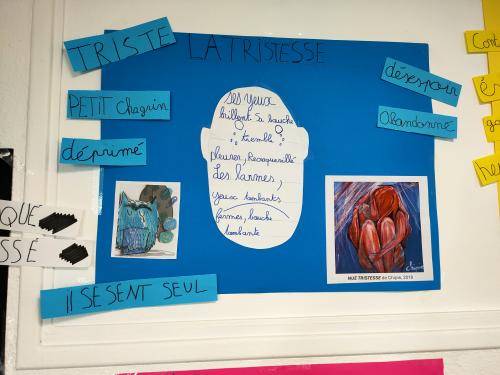 TRISTE
LA TRISTESSE
désespoir
PETIT Chagrin
Abandonné
déprimé
ses yeux
brillent Sa bouche
tremble
pleurer, Recroquevillé
Les larmes,
yeux tombants
fermés, bouche
tombante
QUE
SSÉ
NUE TRISTESSE de Chipix, 2018
Il SE SENT SEUL
Cont